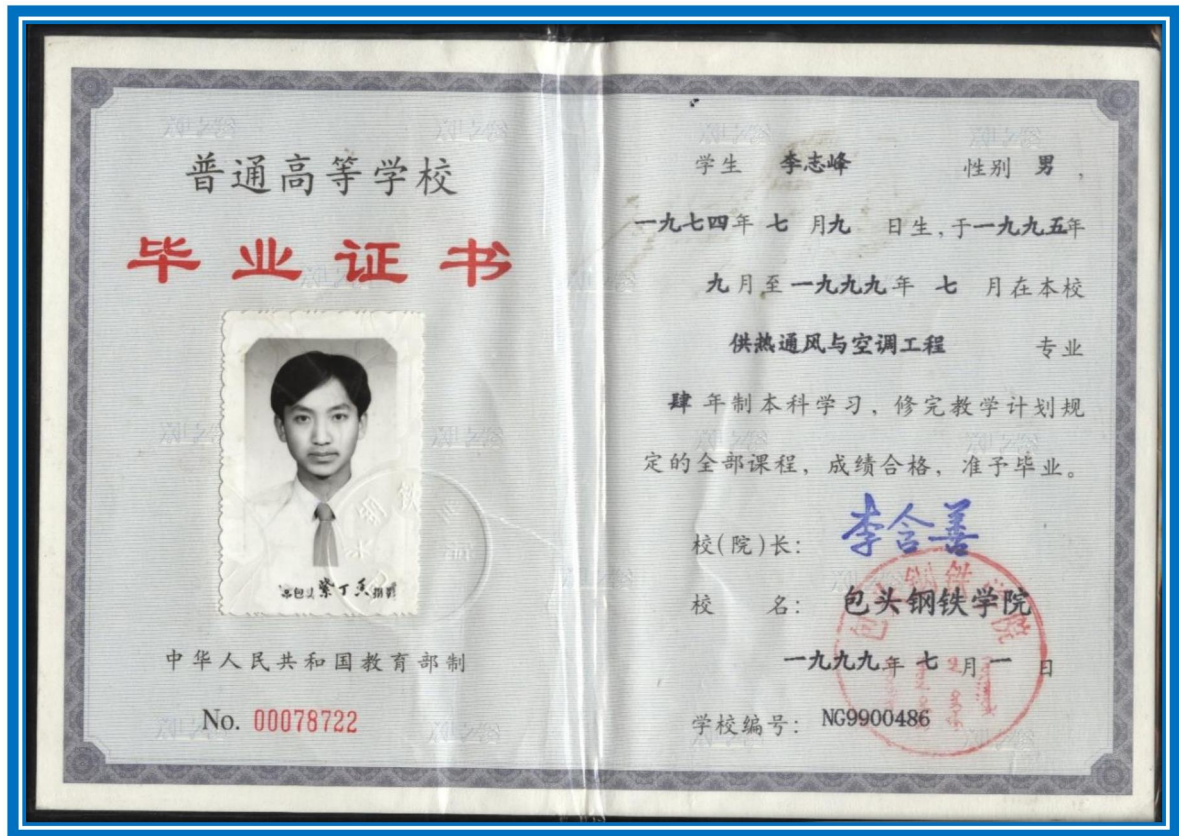 普通高等学校
毕业证书
包头紫丁香摄影
中华人民共和国教育部制
No. 00078722
学生 李志峰 性别 男，
一九七四年 七 月九 日生，于一九九五年
九月至一九九九年 七 月在本校
供热通风与空调工程 专业
肆 年制本科学习，修完教学计划规
定的全部课程，成绩合格，准予毕业。
校(院)长： 李含善
校 名： 包头钢铁学院
一九九九年 七 月 一 日
学校编号： NG9900486
包头钢铁学院